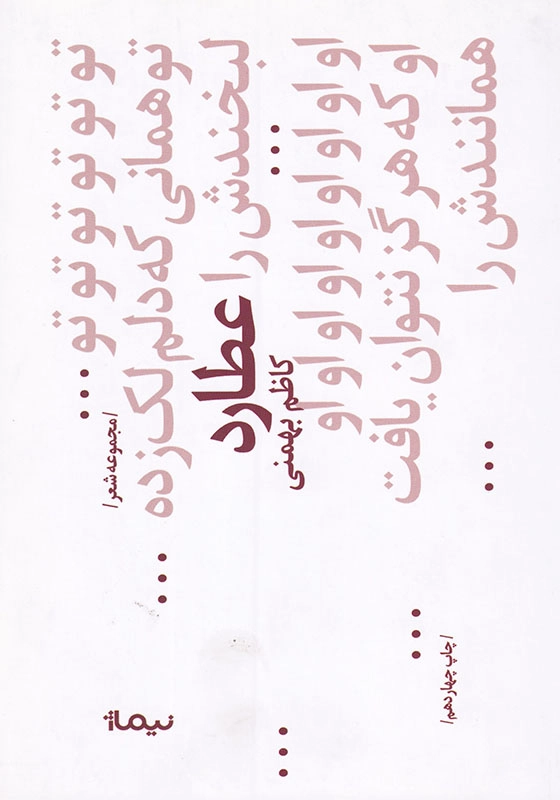 تو تو تو تو تو تو ...
/ مجموعه شعر /
تو همانی که دلم لک زده ...
لبخندش را ...
عطارد
کاظم بهمنی
او او او او او او او او ...
او که هرگز نتوان یافت ...
همانندش را ...
/ چاپ چهاردهم /
نیماژ